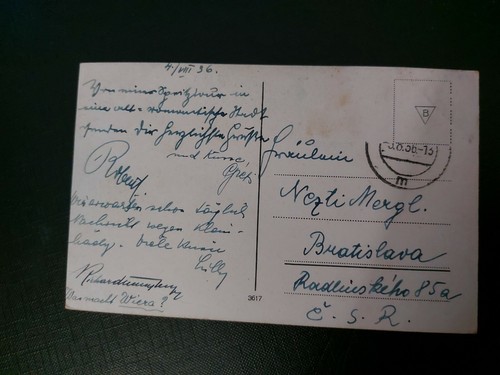 4./VIII 36.
Von einer Spritztour in
eine alt-romantische Stadt
senden Dir herzlichste Grüße
und Küsse,
Robert
Wir erwarten schon täglich
Nachricht wegen
viele Küsse
Lilly
Was macht Wiera?
3617
B
.8.36-13
m
Fräulein
Nezti Mergl.
Bratislava
Radlinského 85a
Č. S. R.